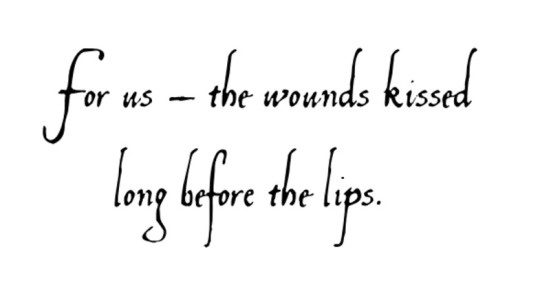 for us – the wounds kissed
long before the lips.